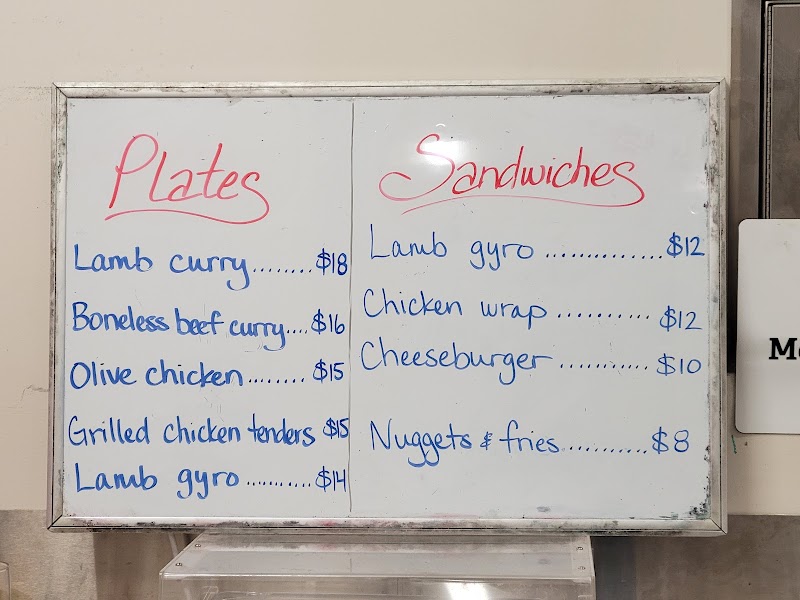 Plates
Lamb curry........$18
Boneless beef curry....$16
Olive chicken........$15
Grilled chicken tenders $15
Lamb gyro...........$14
Sandwiches
Lamb gyro ..............$12
Chicken wrap ..........$12
Cheeseburger ...........$10
Nuggets & fries..........$8